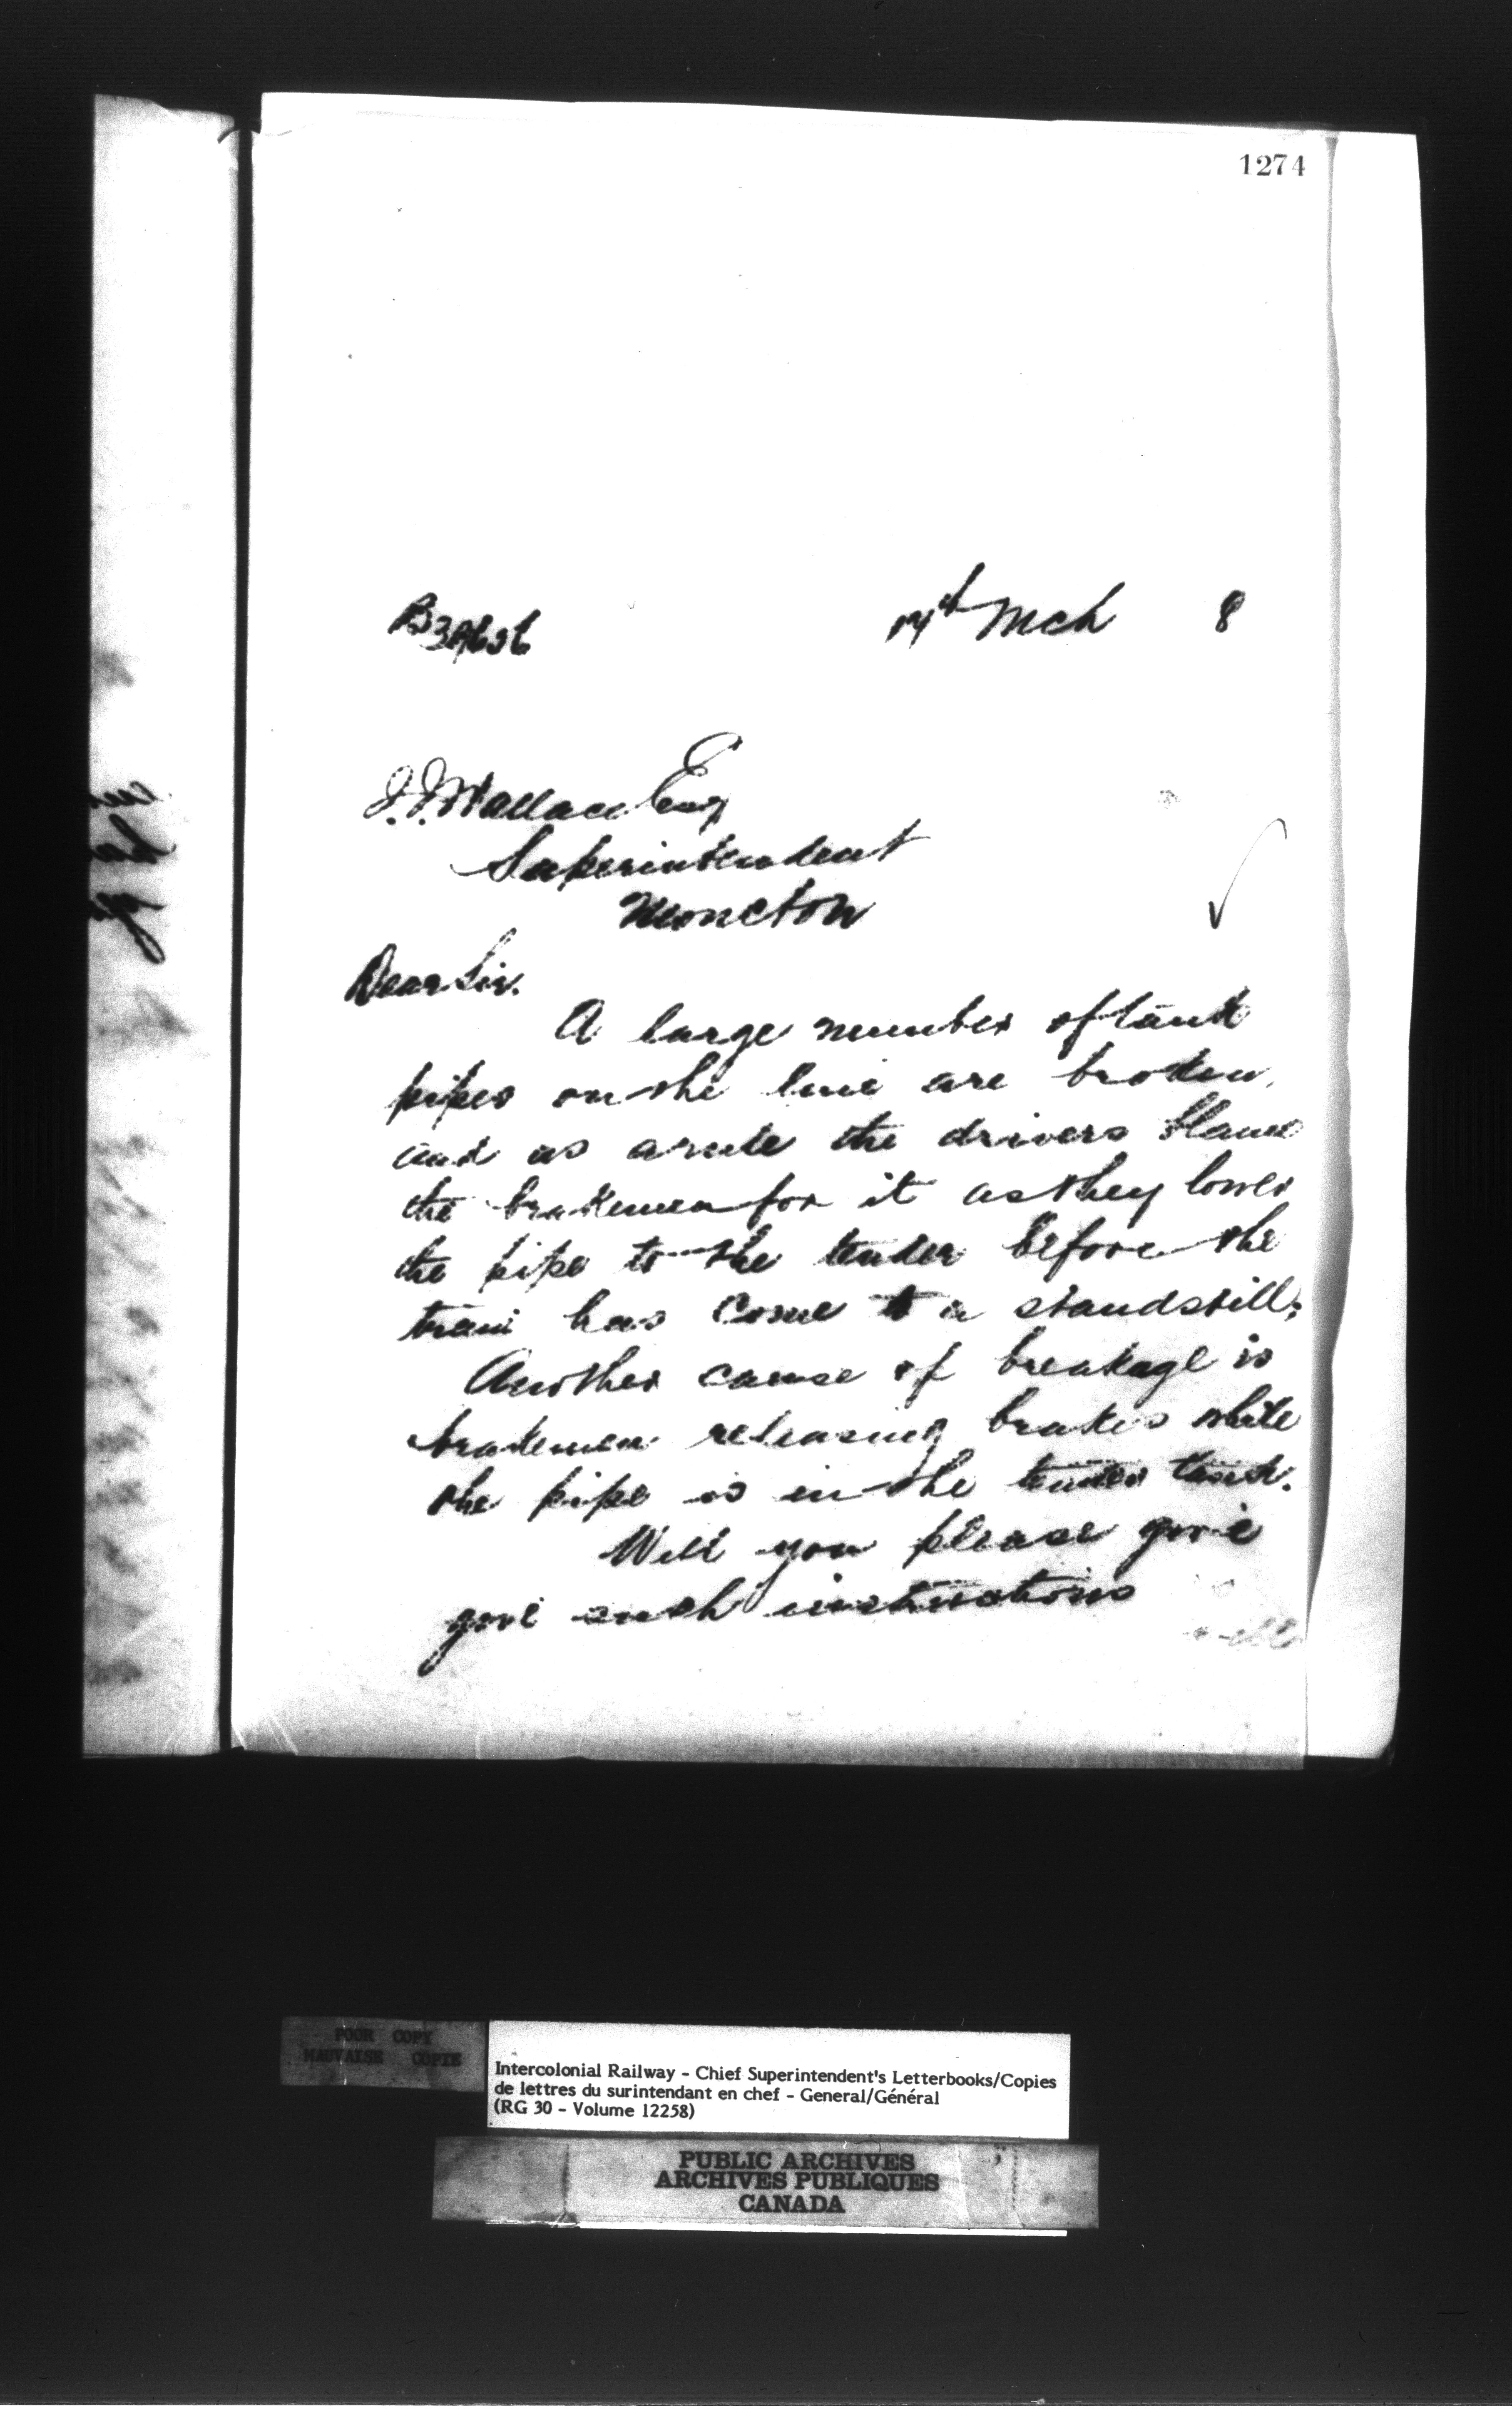 1274
Mch 8
J.J. Wallace Esq
Superintendent
Moncton
Dear Sir.
A large number of tank
pipes on the line are broken,
and as a rule the drivers blame
the brakemen for it as they lower
the pipe to the tender before the
train has come to a standstill;
Another cause of breakage is
brakemen releasing brakes while
the pipe is in the tender tank.
Will you please give
give such instructions
POOR COPY
MAUVAISE COPIE
Intercolonial Railway - Chief Superintendent's Letterbooks/Copies
de lettres du surintendant en chef - General/Général
(RG 30 - Volume 12258)
PUBLIC ARCHIVES
ARCHIVES PUBLIQUES
CANADA